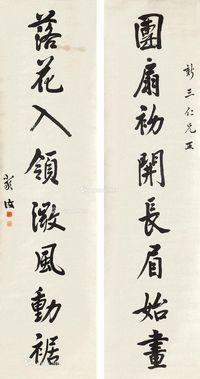 新三仁兄正
團扇初開長眉始畫
落花入領微風動裾